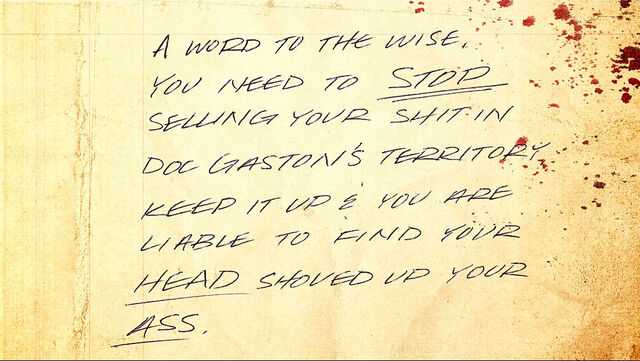 A WORD TO THE WISE.
YOU NEED TO STOP
SELLING YOUR SHIT IN
DOC GASTON'S TERRITORY
KEEP IT UP & YOU ARE
LIABLE TO FIND YOUR
HEAD SHOVED UP YOUR
ASS.